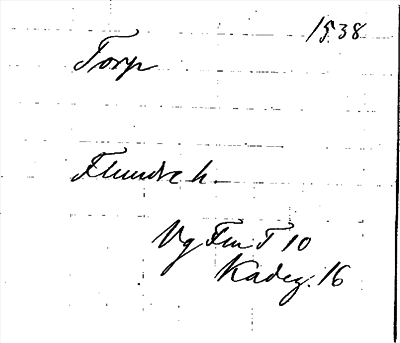 1538
Torp
Flundre h.
Vg Fm T 10
Kadeg. 16